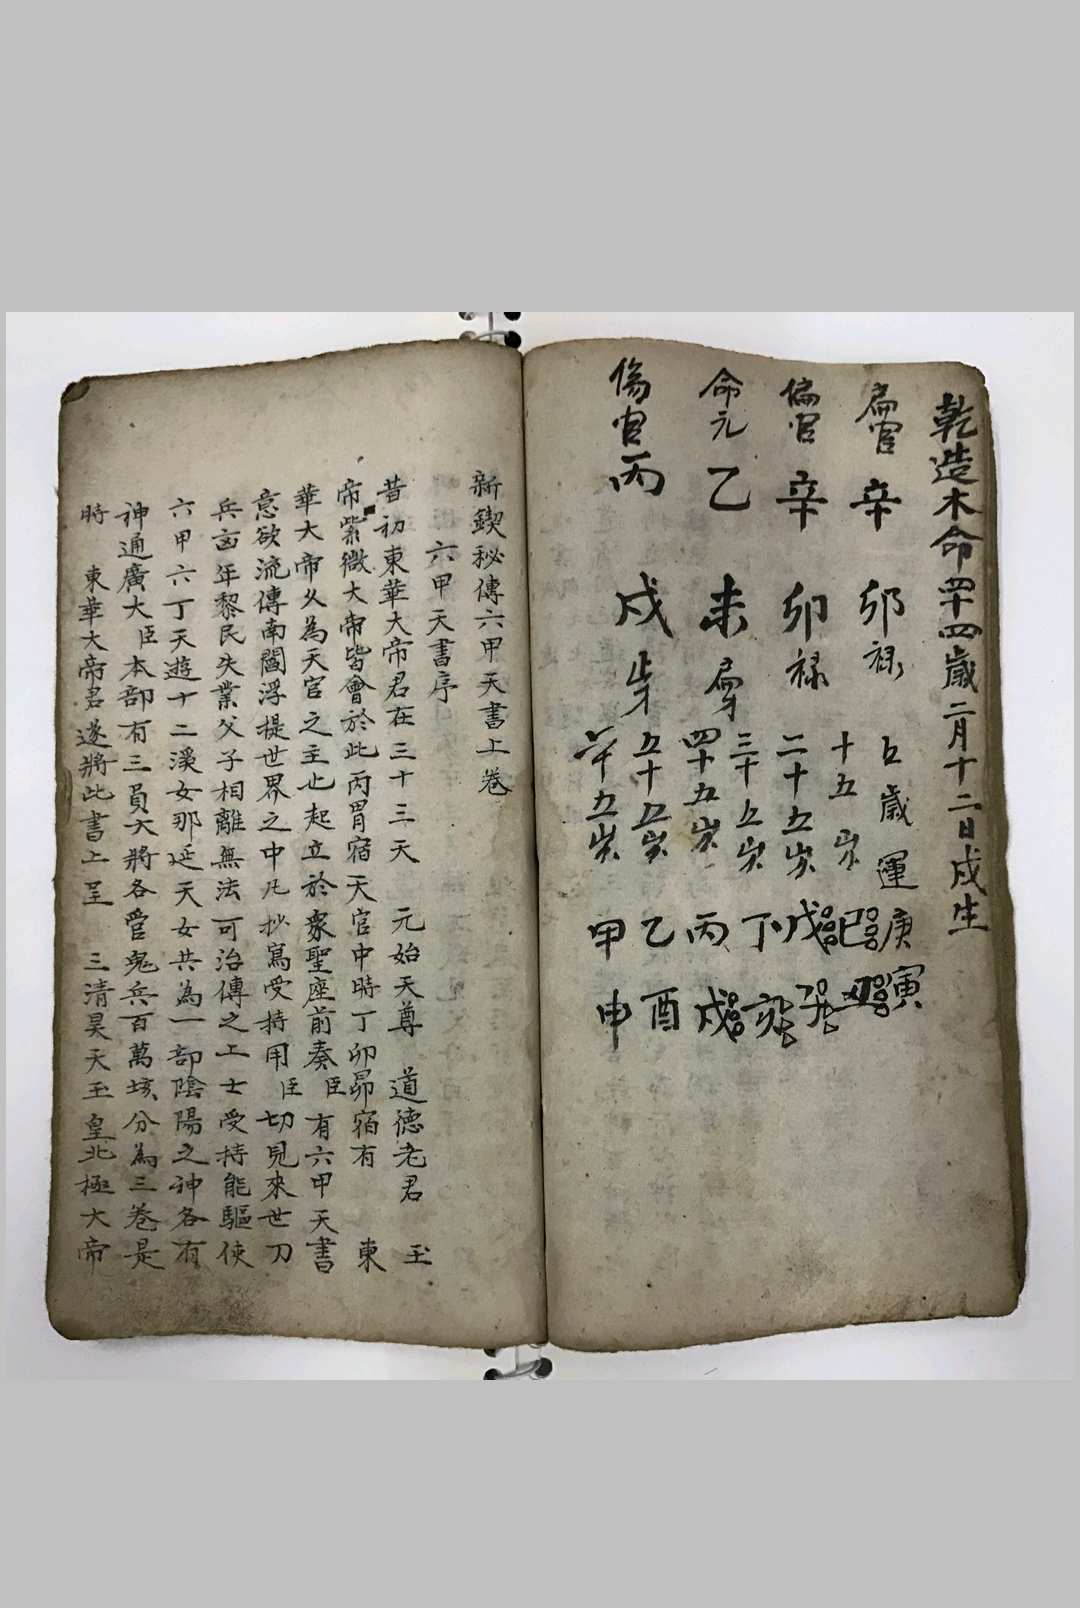 乾造木命四十四歲二月十二日戌生
偏官 辛 卯 祿
偏官 辛 卯 祿
命元 乙 未
傷官 丙 戌
五歲運庚寅
十五岁
二十五岁戊
三十五岁丁亥
四十五岁丙戌
五十五岁乙酉
六十五岁甲申
新鍥秘傳六甲天書上卷
六甲天書序
昔初東華大帝君在三十三天 元始天尊 道德老君 玉
帝紫微大帝皆會於此丙胃宿天官中時丁卯昴宿有 東
華大帝乆為天官之主也起立於衆聖座前奏臣有六甲天書
意欲流傳南閻浮提世界之中凡抄寫受持用臣切見來世刀
兵㐫年黎民失業父子相離無法可治傳之上士受持能驅使
六甲六丁天遊十二溪女那延天女共為一部陰陽之神各有
神通廣大臣本部有三員大將各管鬼兵百萬垓分為三卷是
時 東華大帝君遂將此書上呈 三清昊天玉皇北極大帝